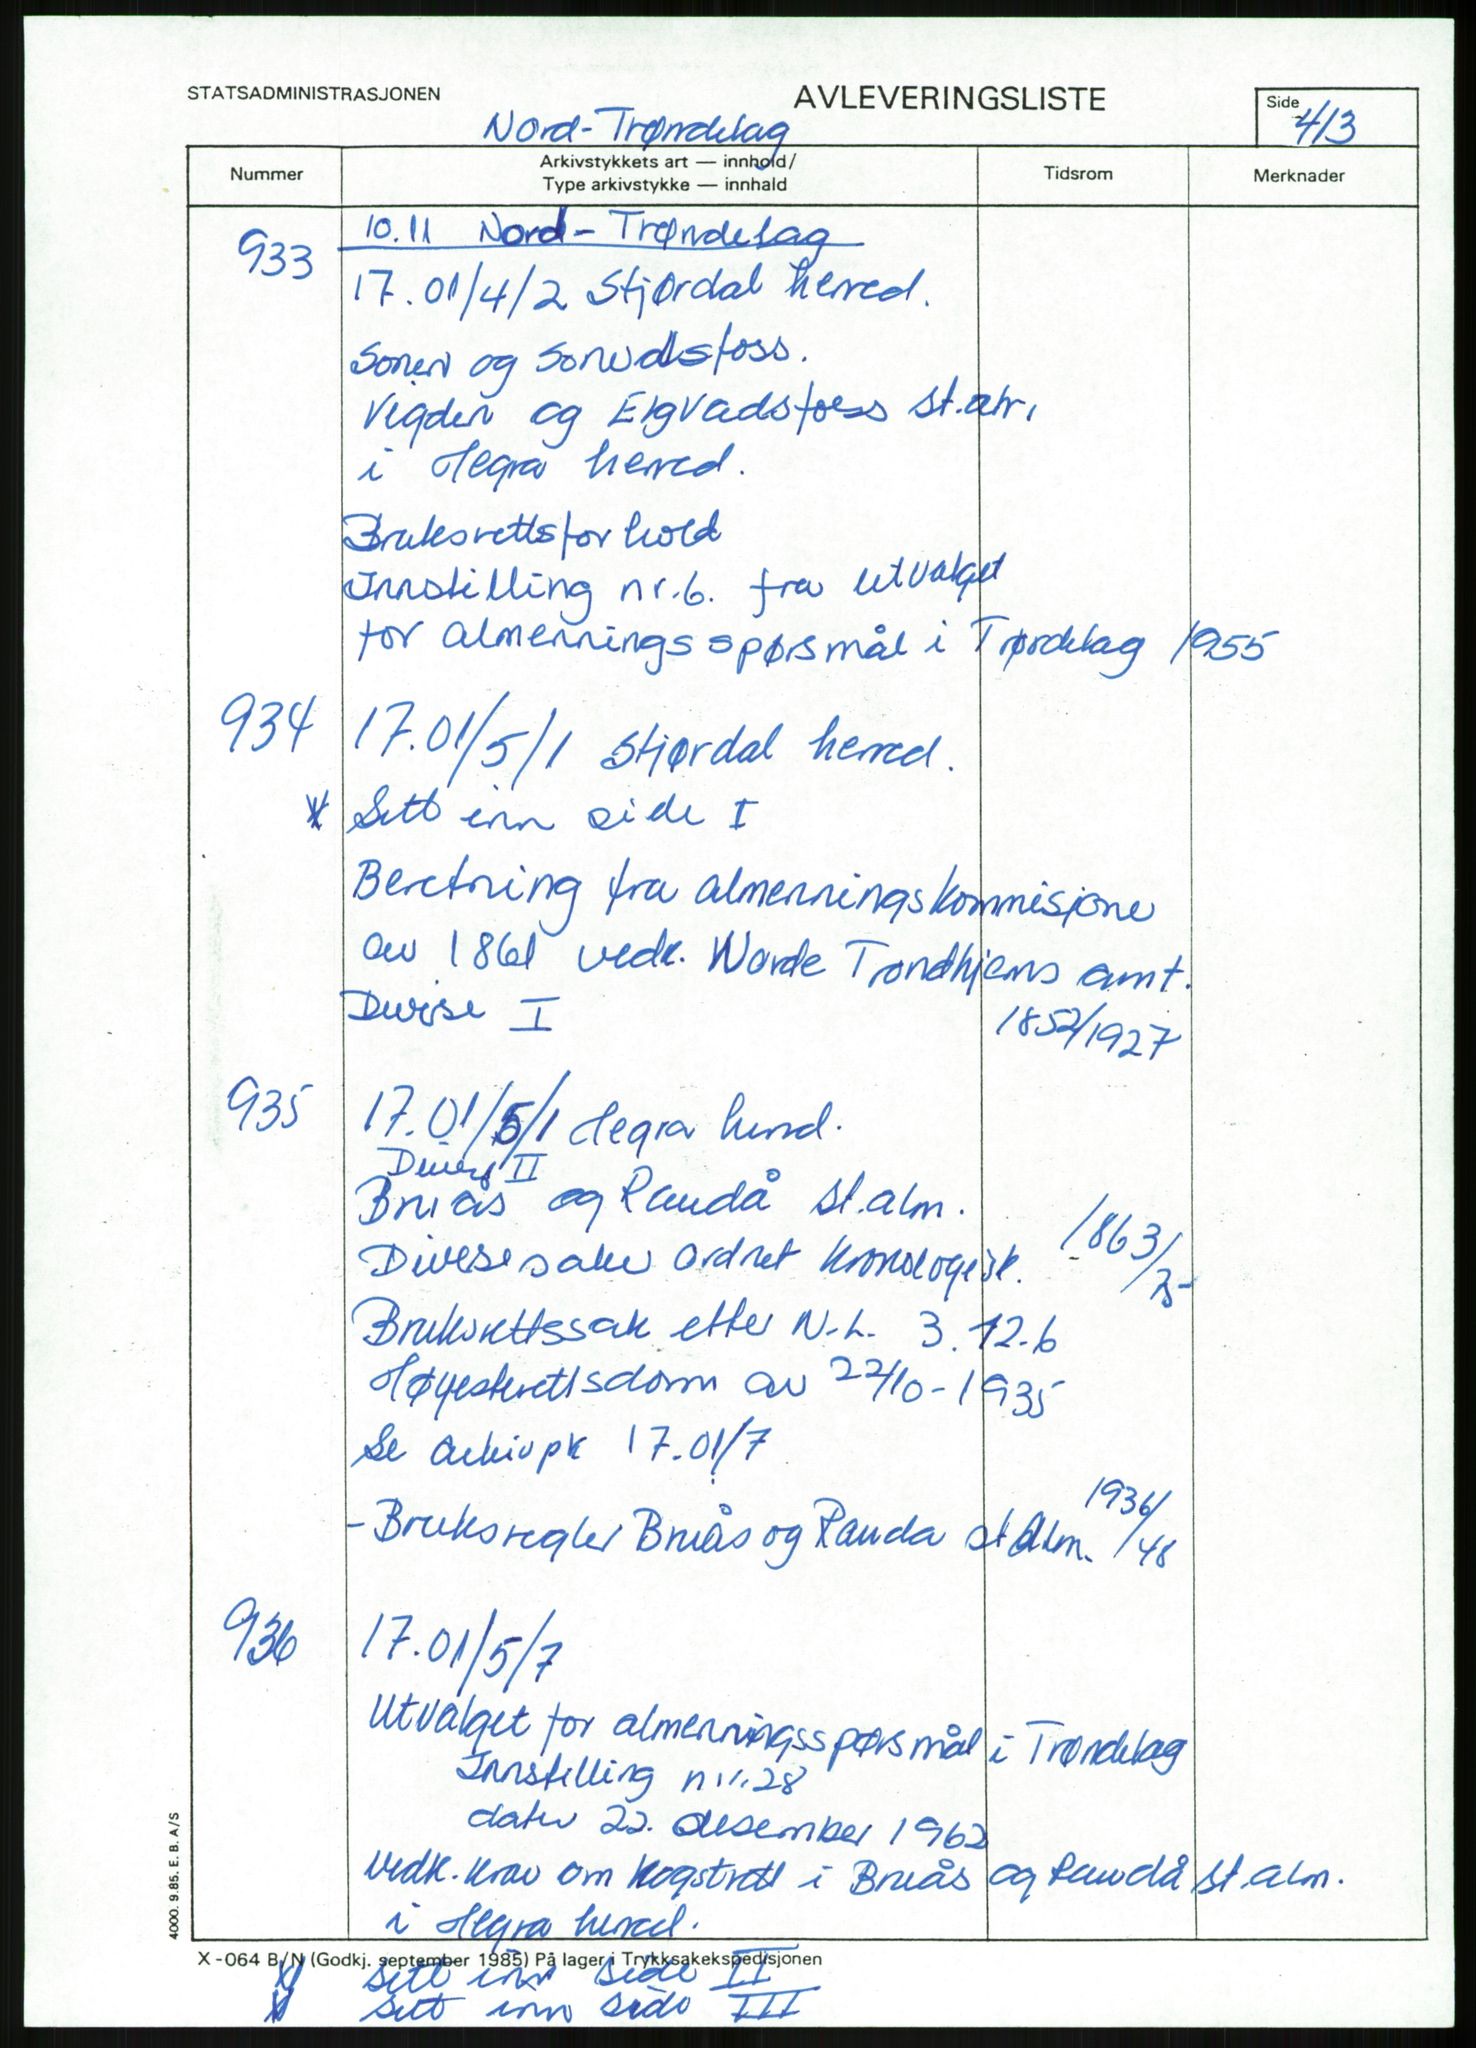 STATSADMINISTRASJONEN
AVLEVERINGSLISTE
Side 413
Nord-Trøndelag
Nummer
Arkivstykkets art — innhold/
Type arkivstykke — innhald
Tidsrom
Merknader
10.11 Nord-Trøndelag
933 17.01/4/2 Stjørdal herred.
og
og st.
i Hegra herred.
Bruksrettsforhold
Innstilling nr.6. fra utvalget
for almenningsspørsmål i Trøndelag 1955
934 17.01/5/1 Stjørdal herred.
Sett inn side I
Beretning fra almenningskommisjone
av 1861 vedk. Nordre Trondhjems amt.
Diverse I 1852/1927
935 17.01/5/1 Hegra herred.
Diverse II
Bruås og Raudå st.alm.
Diverse saker ordnet kronologisk. 1863/75
Bruksrettssak etter N.L. 3.12.6
Høyesterettsdom av 22/10-1935
Se arkivpk 17.01/7
- Bruksregler Bruås og Rauda st Alm. 1936/48
936 17.01/5/7
Utvalget for almenningsspørsmål i Trøndelag
Innstilling nr. 28
dater 22. desember 1962
vedk. krav om i Bruås og Raudå st.alm.
i Hegra herred.
4000. 9.85. E. B. A/S
X-064 B/N (Godkj. september 1985) På lager i Trykksakekspedisjonen
sett inn side II
sett inn side III